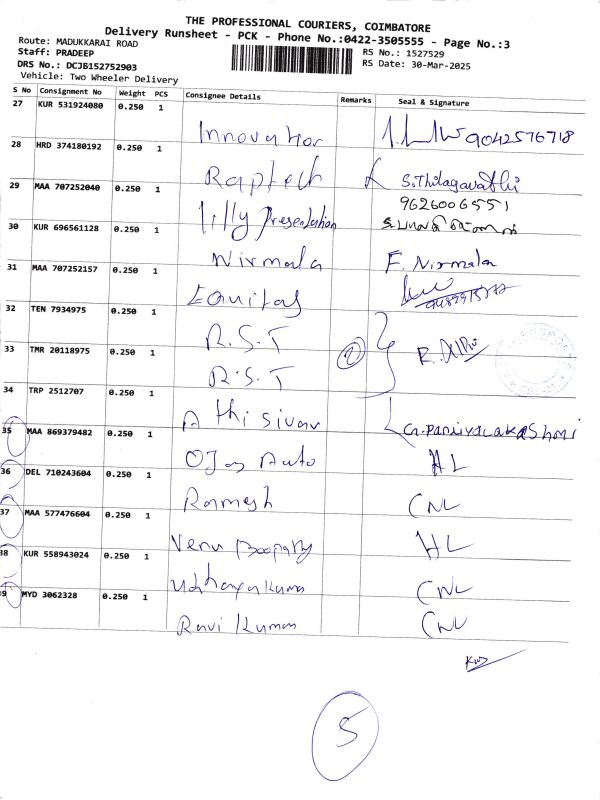 THE PROFESSIONAL COURIERS, COIMBATORE
Delivery Runsheet - PCK - Phone No.:0422-3505555 - Page No.:3
Route: MADUKKARAI ROAD
Staff: PRADEEP
DRS No.: DCJB152752903
Vehicle: Two Wheeler Delivery
RS No.: 1527529
RS Date: 30-Mar-2025
S No Consignment No Weight PCS Consignee Details Remarks Seal & Signature
27 KUR 531924080 0.250 1 Innovation 9042576718
28 HRD 374180192 0.250 1 Raptech S.Thilagavathi
29 MAA 707252040 0.250 1 Lilly Presentation 9626006551
30 KUR 696561128 0.250 1 Nirmala F. Nirmala
31 MAA 707252157 0.250 1 Equitas
32 TEN 7934975 0.250 1 R.S.T
33 TMR 20118975 0.250 1 R.S.T 2
34 TRP 2512707 0.250 1 Athisivan
35 MAA 869379482 0.250 1 Ojas Auto HL
36 DEL 710243604 0.250 1 Ramesh CNL
37 MAA 577476604 0.250 1 Venu Boopathy HL
38 KUR 558943024 0.250 1 Udhayakumar CNL
39 MYD 3062328 0.250 1 Ravi Kumar CNL
5